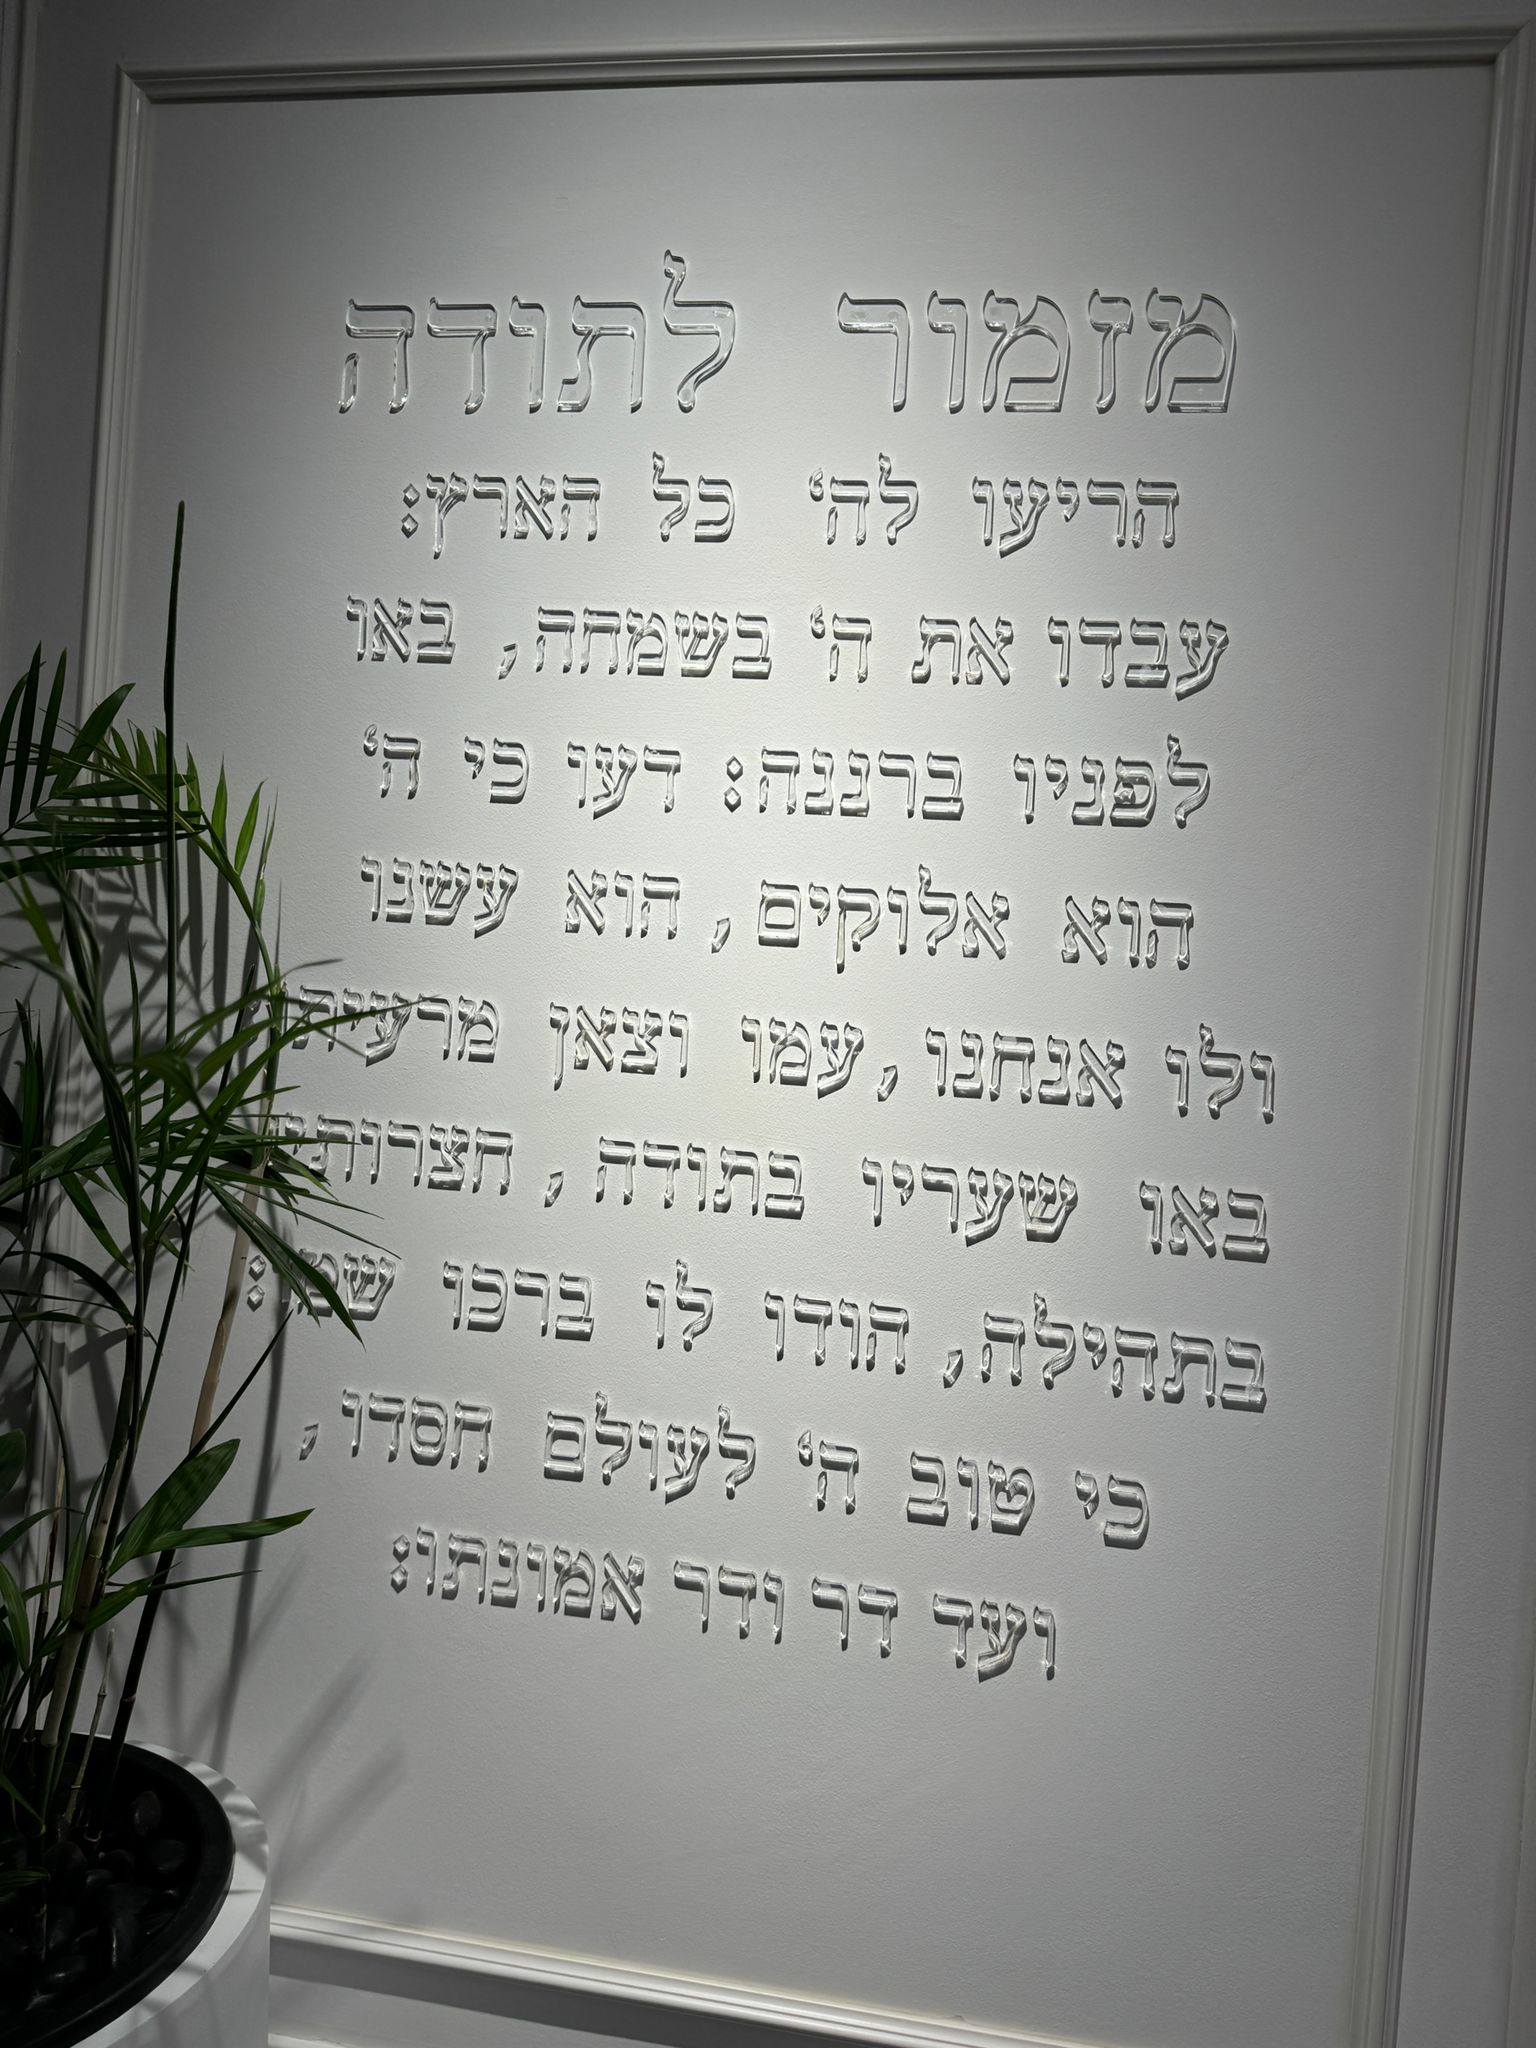 מזמור לתודה
הריעו לה' כל הארץ:
עבדו את ה' בשמחה, באו
לפניו ברננה: דעו כי ה'
הוא אלוקים, הוא עשנו
ולו אנחנו, עמו וצאן
באו שעריו בתודה, חצרותיו
בתהילה, הודו לו ברכו שמו:
כי טוב ה' לעולם חסדו,
ועד דר ודר אמונתו: